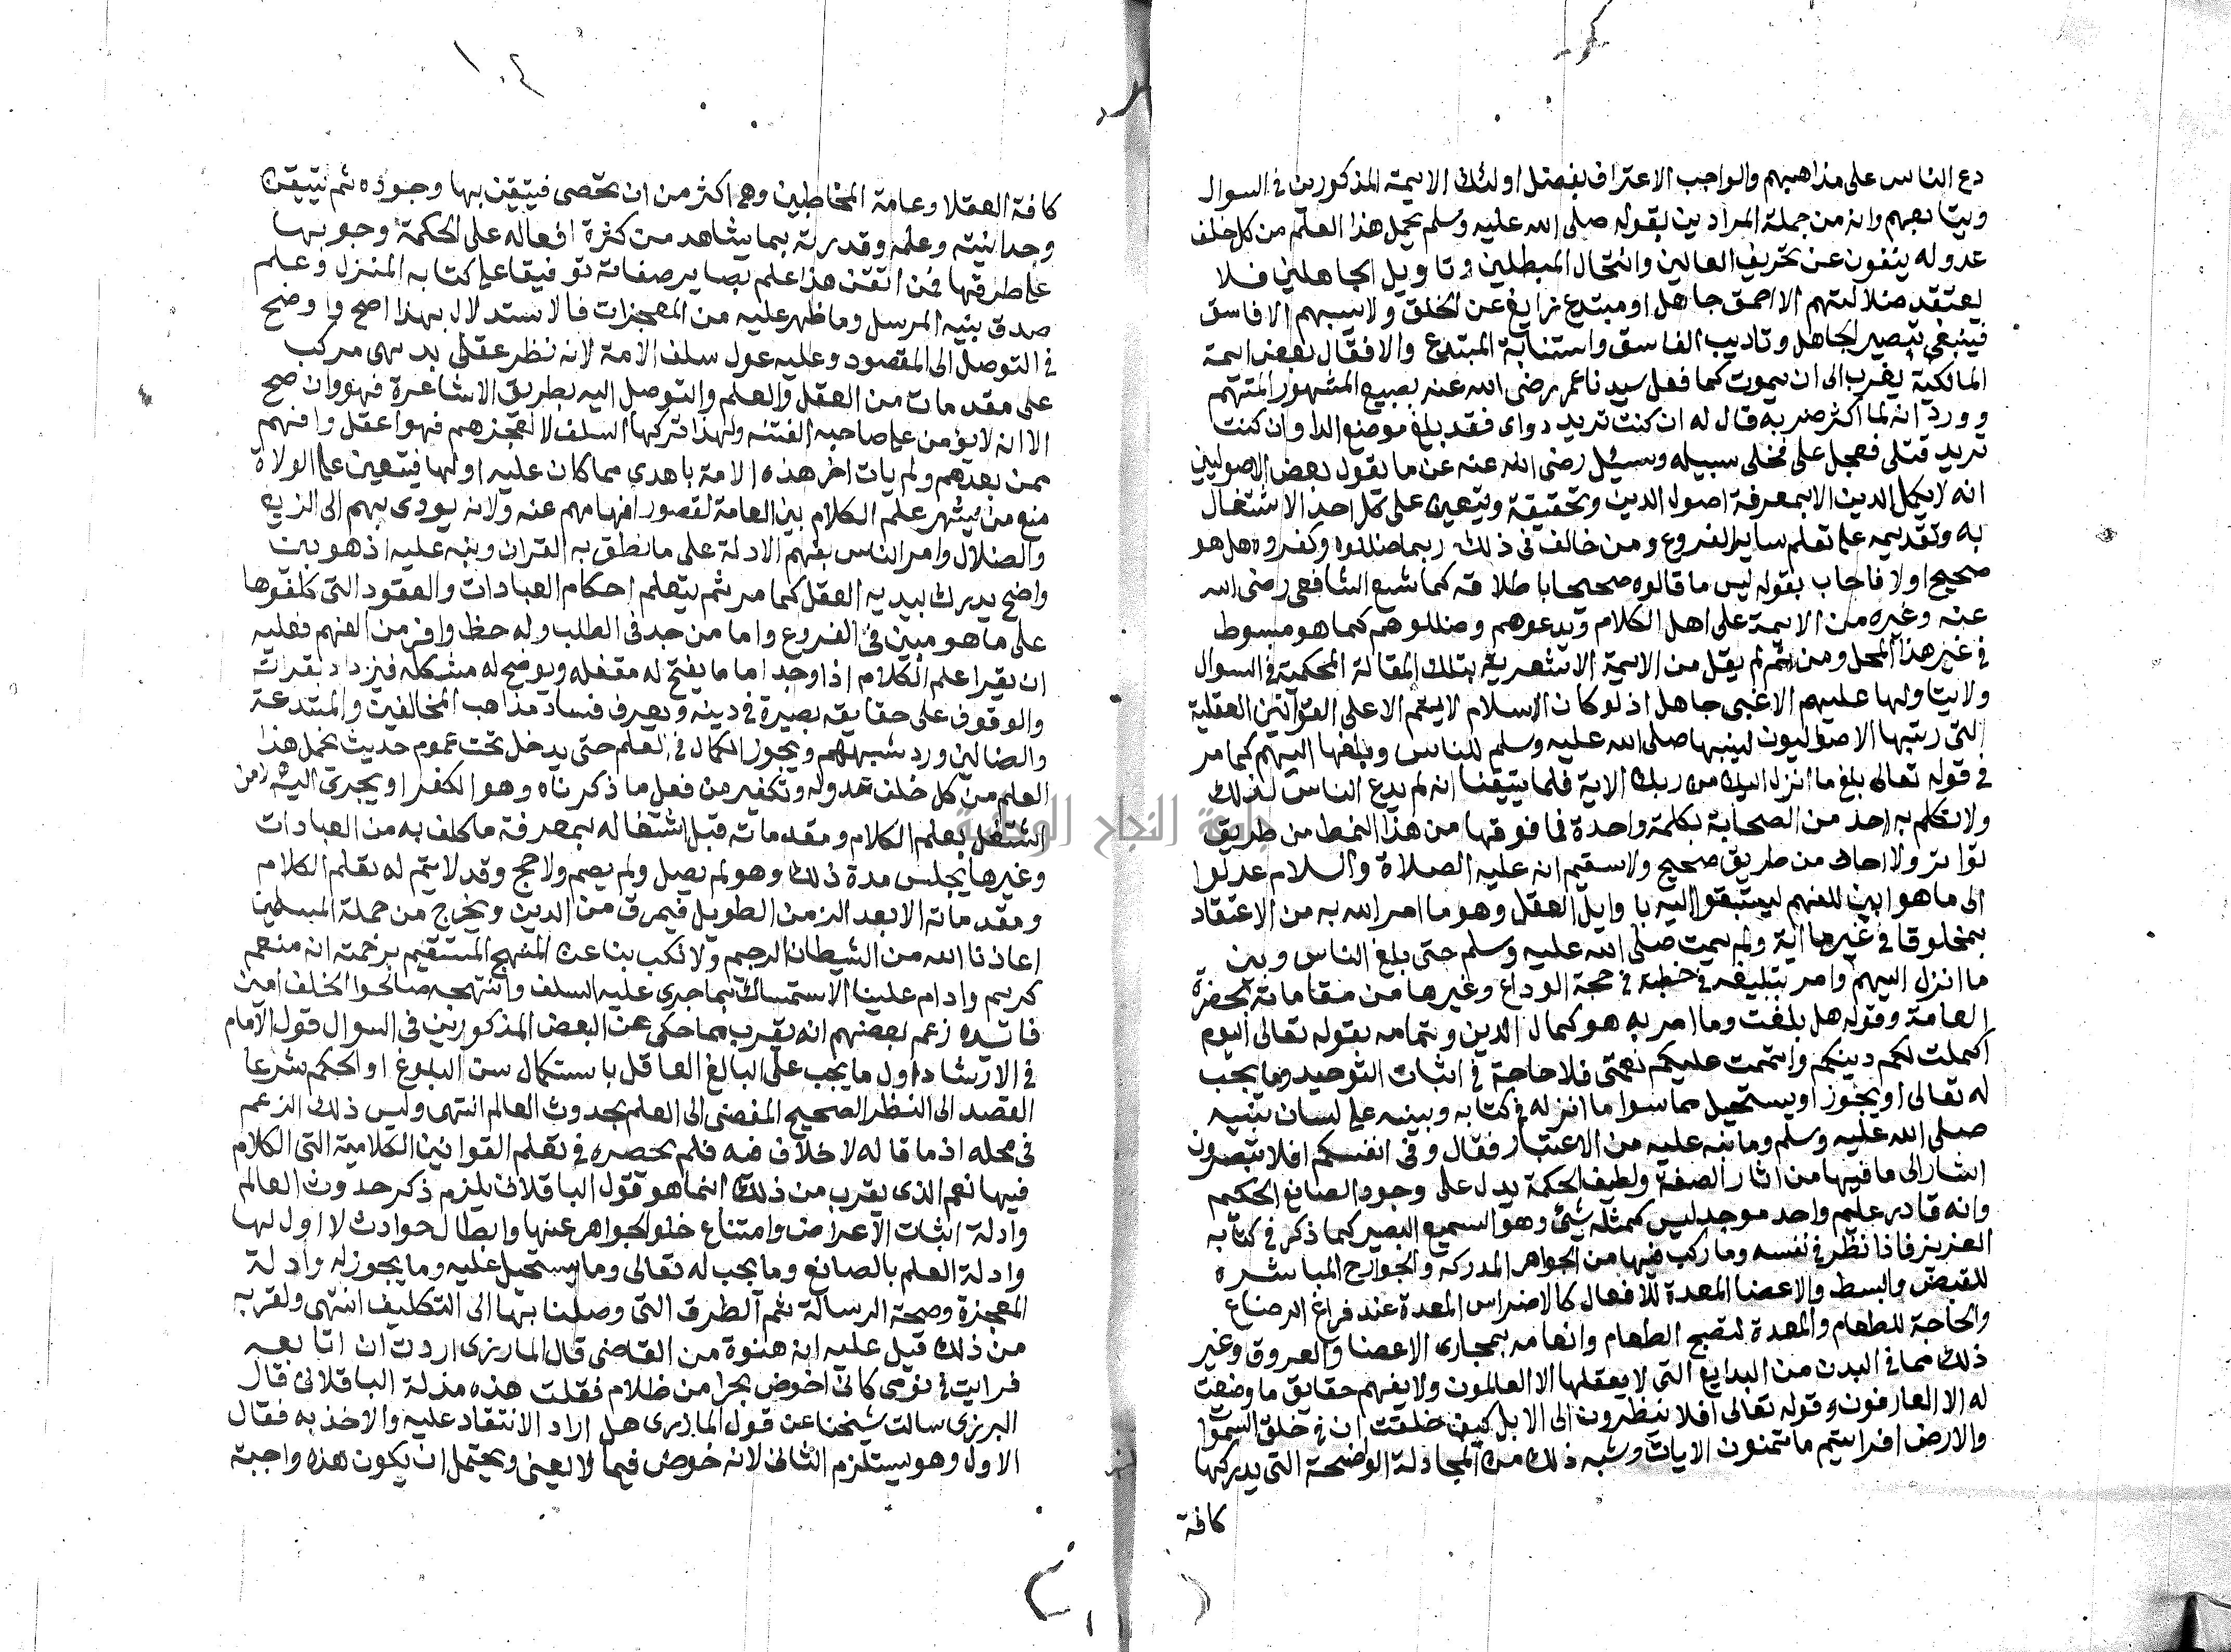 دع الناس على مذاهبهم والواجب الاعتراف بفضل اولئك الايمة المذكورين في السوال
ويتابعهم وانه من جملة المرادين بقوله صلى الله عليه وسلم يحمل هذا العلم من كل خلف
عدوله ينفون عن تحريف الغالين وانتحال المبطلين وتاويل الجاهلين فلا
يعتقد ضلالتهم الا احمق جاهل او مبتدع زايغ عن الخلق ولا يسبهم الا فاسق
فينبغي تبصير الجاهل وتاديب الفاسق واستتابة المبتدع والا فقال بعض ايمة
المالكية يضرب الى ان يموت كما فعل سيدنا عمر رضي الله عنه بصبيع المشهور المتهم
وورد انه لما اكثر ضربه قال له ان كنت تريد دواى فقد بلغ موضع الدا وان كنت
تريد قتلى فعجل على فخلى سبيله وسيئل رضي الله عنه عن ما يقول بعض الاصوليين
انه لا يكمل الدين الا بمعرفة اصول الدين وتحقيقة ويتعين على كل احد الاشتغال
به وتقديمه على تعلم ساير الفروع ومن خالف في ذلك ربما ضللوه وكفروه هل هو
صحيح اولا فاجاب بقوله ليس ما قالوه صحيحا باطلاقه كما شيع الشافعي رضي الله
عنه وغيره من الايمة على اهل الكلام وبدعوهم وضللوهم كما هو مبسوط
في غير هذا المحل ومن ثم لم يقل من الايمة الاشعرية بتلك المقالة المحكية في السوال
ولا يتاولها عليهم الا غبي جاهل اذ لو كان الاسلام لا يتم الا على القوانين العقلية
التي رتبها الاصوليون لبينها صلى الله عليه وسلم للناس وبلغها اليهم كما مر
في قوله تعالى بلغ ما انزل اليك من ربك الاية فلما تيقنا انه لم يدع الناس لذلك
ولا تكلم به احد من الصحابة بكلمة واحدة فما فوقها من هذا النمط من طريق
تواتر ولا احاد من طريق صحيح ولا سقيم انه عليه الصلاة والسلام عدلوا
الى ما هو ابين للفهم ليستبقوا اليه باوايل العقل وهو ما امر الله به من الاعتقاد
بمخلوقا في غير ما اية ولم يمت صلى الله عليه وسلم حتى بلغ الناس وبين
ما انزل اليهم وامر بتبليغه في خطبة في حجة الوداع وغيرها من مقاماته بحضرة
العامة وقوله هل بلغت وما امر به هو كمال الدين وتمامه بقوله تعالى اليوم
اكملت لكم دينكم واتممت عليكم نعمتى فلا حاجة في اثبات التوحيد وما يجب
له تعالى او يجوز او يستحيل مما سوا ما انزله في كتابه وبينه على لسان نبيه
صلى الله عليه وسلم وما نبه عليه من الاعتبار فقال وفى انفسكم افلا تبصرون
اشار الى ما فيها من اثار الصنعة ولطيف الحكمة يدل على وجود الصانع الحكيم
وانه قادر عليم واحد موجد ليس كمثله شئ وهو السميع البصير كما ذكر في كتابه
العزيز فاذا نظر في نفسه وما ركب فيها من الجواهر المدركه والجوارح المباشرة
للقبض والبسط والاعضا المعدة للافعال كالاضراس المعدة عند فراغ الرضاع
والحاجة للطعام والمعدة لنضج الطعام وانعامه بمجارى الاعضا والعروق وغير
ذلك مما في البدن من البدايع التي لا يعقلها الا العالمون ولا يفهم حقايق ما وضعت
له الا العارفون وقوله تعالى افلا ينظرون الى الابل كيف خلقت ان في خلق السموا
والارض افرايتم ما تمنون الايات وشبه ذلك من المجادلة الواضحة التي يدركها
كافة
١٠٤
كافة العقلا وعامة المخاطبين وهي اكثر من ان تحصى فيتيقن بها وجوده ثم يتيقن
وحدانيته وعلمه وقدرته بما يشاهد من كثرة افعاله على الحكمة وجوبها
على طرقها فمن اتقن هذا علم بصاير صفاته توفيقا على كتابه المنزل وعلم
صدق نبيه المرسل وما ظهر عليه من المعجزات فالاستدلال بهذا اصح واوضح
في التوصل الى المقصود وعليه عول سلف الامة لانه نظر عقلي بديهى مركب
على مقدمات من العقل والعلم والتوصل اليه بطريق الاشاعرة فهو وان صح
الا انه لا يؤمن على صاحبه الفتنه ولهذا تركها السلف لا لعجزهم فهو اعقل وافهم
ممن بعدهم ولم يات اخر هذه الامة باهدى مما كان عليه اولها فيتعين على الولاة
منع من يشهر علم الكلام بين العامة لقصور افهامهم عنه ولانه يودى بهم الى الزيع
والضلال وامر الناس بفهم الادلة على ما نطق به القران ونبه عليه اذ هو بين
واضح يدرك ببديه العقل كما مر ثم يتعلم احكام العبادات والعقود التي كلفوها
على ما هو مبين في الفروع واما من جد في الطلب وله حظ وافر من الفهم فعليه
ان يقرا علم الكلام اذا وجد اماما يفتح له مقفله ويوضح له مشكله فيزداد بقراته
والوقوف على حقايقه بصيرة في دينه ويعرف فساد مذاهب المخالفين والمبتدعة
والضالين ورد شبههم ويجوز الكمال في العلم حتى يدخل تحت عموم حديث يحمل هذا
العلم من كل خلف عدوله وتكفير من فعل ما ذكرناه وهو الكفر او يجرى اليه لان من
اشتغل بعلم الكلام ومقدماته قبل اشتغاله بمعرفة ما كلف به من العبادات
وغيرها يجلس مدة ذلك وهو لم يصل ولم يصم ولا حج وقد لا يتم له تعلم الكلام
ومقدماته الا بعد الزمن الطويل فيمرق من الدين ويخرج من جملة المسلمين
اعاذنا الله من الشيطان الرجيم ولا نكب بنا عن المنهج المستقيم برحمته انه منعم
كريم وادام علينا الاستمساك بما جرى عليه السلف وانتهجه صالحوا الخلف امين
فائده زعم بعضهم انه يقرب مما حكى عن البعض المذكورين في السوال قول الامام
في الارشاد اول ما يجب على البالغ العاقل باستكمال سن البلوغ او الحكم شرعا
القصد الى النظر الصحيح المفضى الى العلم بحدوث العالم انتهى وليس ذلك الزعم
في محله اذ ما قاله لا خلاف فيه فلم يحصره في تعلم القوانين الكلامية التي الكلام
فيها نعم الذى يقرب من ذلك انما هو قول الباقلاني يلزم ذكر حدوث العالم
وادلة اثبات الاعراض وامتناع خلو الجواهر عنها وابطال حوادث لا اول لها
وادلة العلم بالصانع وما يجب له تعالى وما يستحيل عليه وما يجوز له وادلة
المعجزة وصحة الرسالة ثم الطرق التي وصلنا بها الى التكليف انتهى ولقربه
من ذلك قيل عليه انه هفوة من القاضى قال المازرى اردت ان اتابعه
فرايت في نومى كاني اخوض بحرا من ظلام فقلت هذه مزلة الباقلاني قال
البرزلى سالت شيخنا عن قول المازرى هل اراد الانتقاد عليه والاخذ به فقال
الاول وهو يستلزم الثاني لانه خوض فيما لا يعنى ويحتمل ان يكون هذه واجبة
جامعة النجاح الوطنية